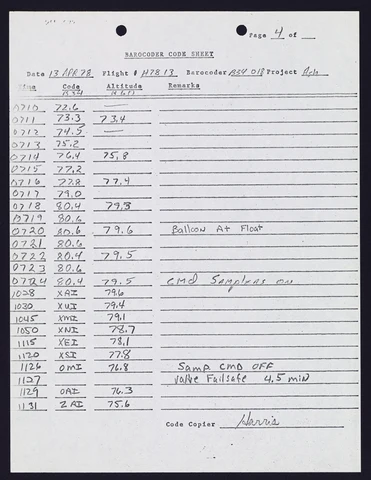 Page 4 of
BAROCODER CODE SHEET
Date 13 APR 78 Flight # H78 13 Barocoder Project
Time Code Altitude Remarks
0710 72.6 —
0711 73.3 73.4
0712 74.5 —
0713 75.2
0714 76.4 75.8
0715 77.2
0716 77.8 77.4
0717 79.0
0718 80.4 79.3
0719 80.6
0720 80.6 79.6 Balloon At Float
0721 80.6
0722 80.4 79.5
0723 80.6
0724 80.4 79.5 CMD Samplers on
1028 XAI 79.6
1030 XUI 79.4
1045 XMI 79.1
1050 XNI 78.7
1115 XEI 78.1
1120 XSI 77.8
1126 OMI 76.8 Samp CMD OFF
1127 Valve Failsafe 4.5 min
1129 OAI 76.3
1131 ZAI 75.6
Code Copier Harris